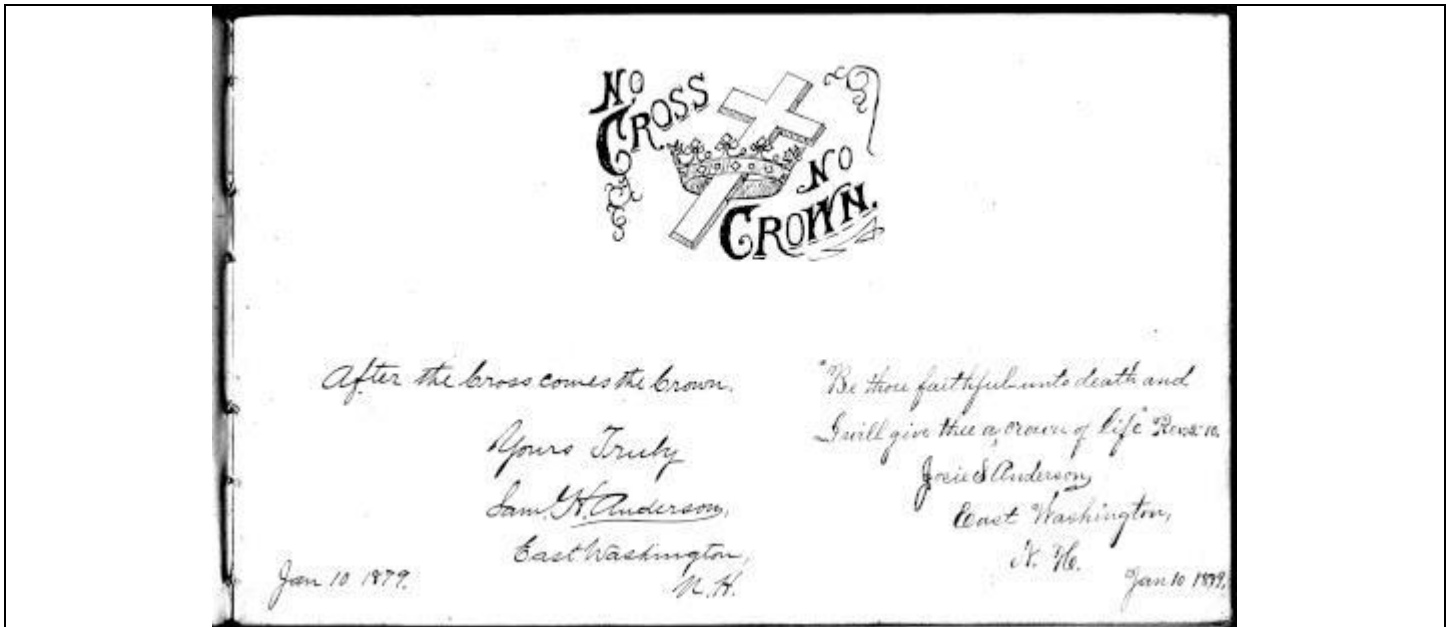 No
Cross
No
Crown.
After the Cross comes the Crown.
Yours Truly
Sam. H. Anderson,
East Washington,
N. H.
Jan 10 1879.
"Be thou faithful unto death and
I will give thee a crown of life" Rev. 2-10.
Josie S Anderson,
East Washington,
N. H.
Jan 10 1879.